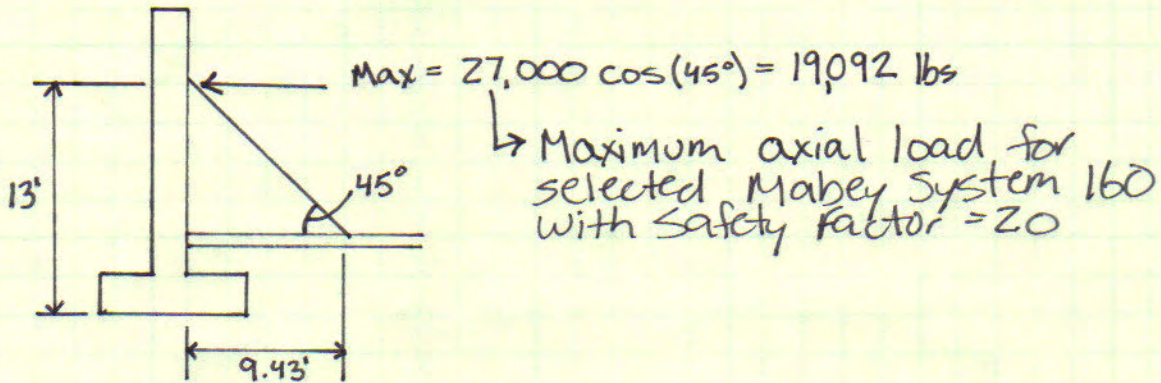 Max = 27,000 cos(45°) = 19,092 lbs
↳ Maximum axial load for
selected Mabey System 160
with Safety Factor = 20
13'
45°
9.43'